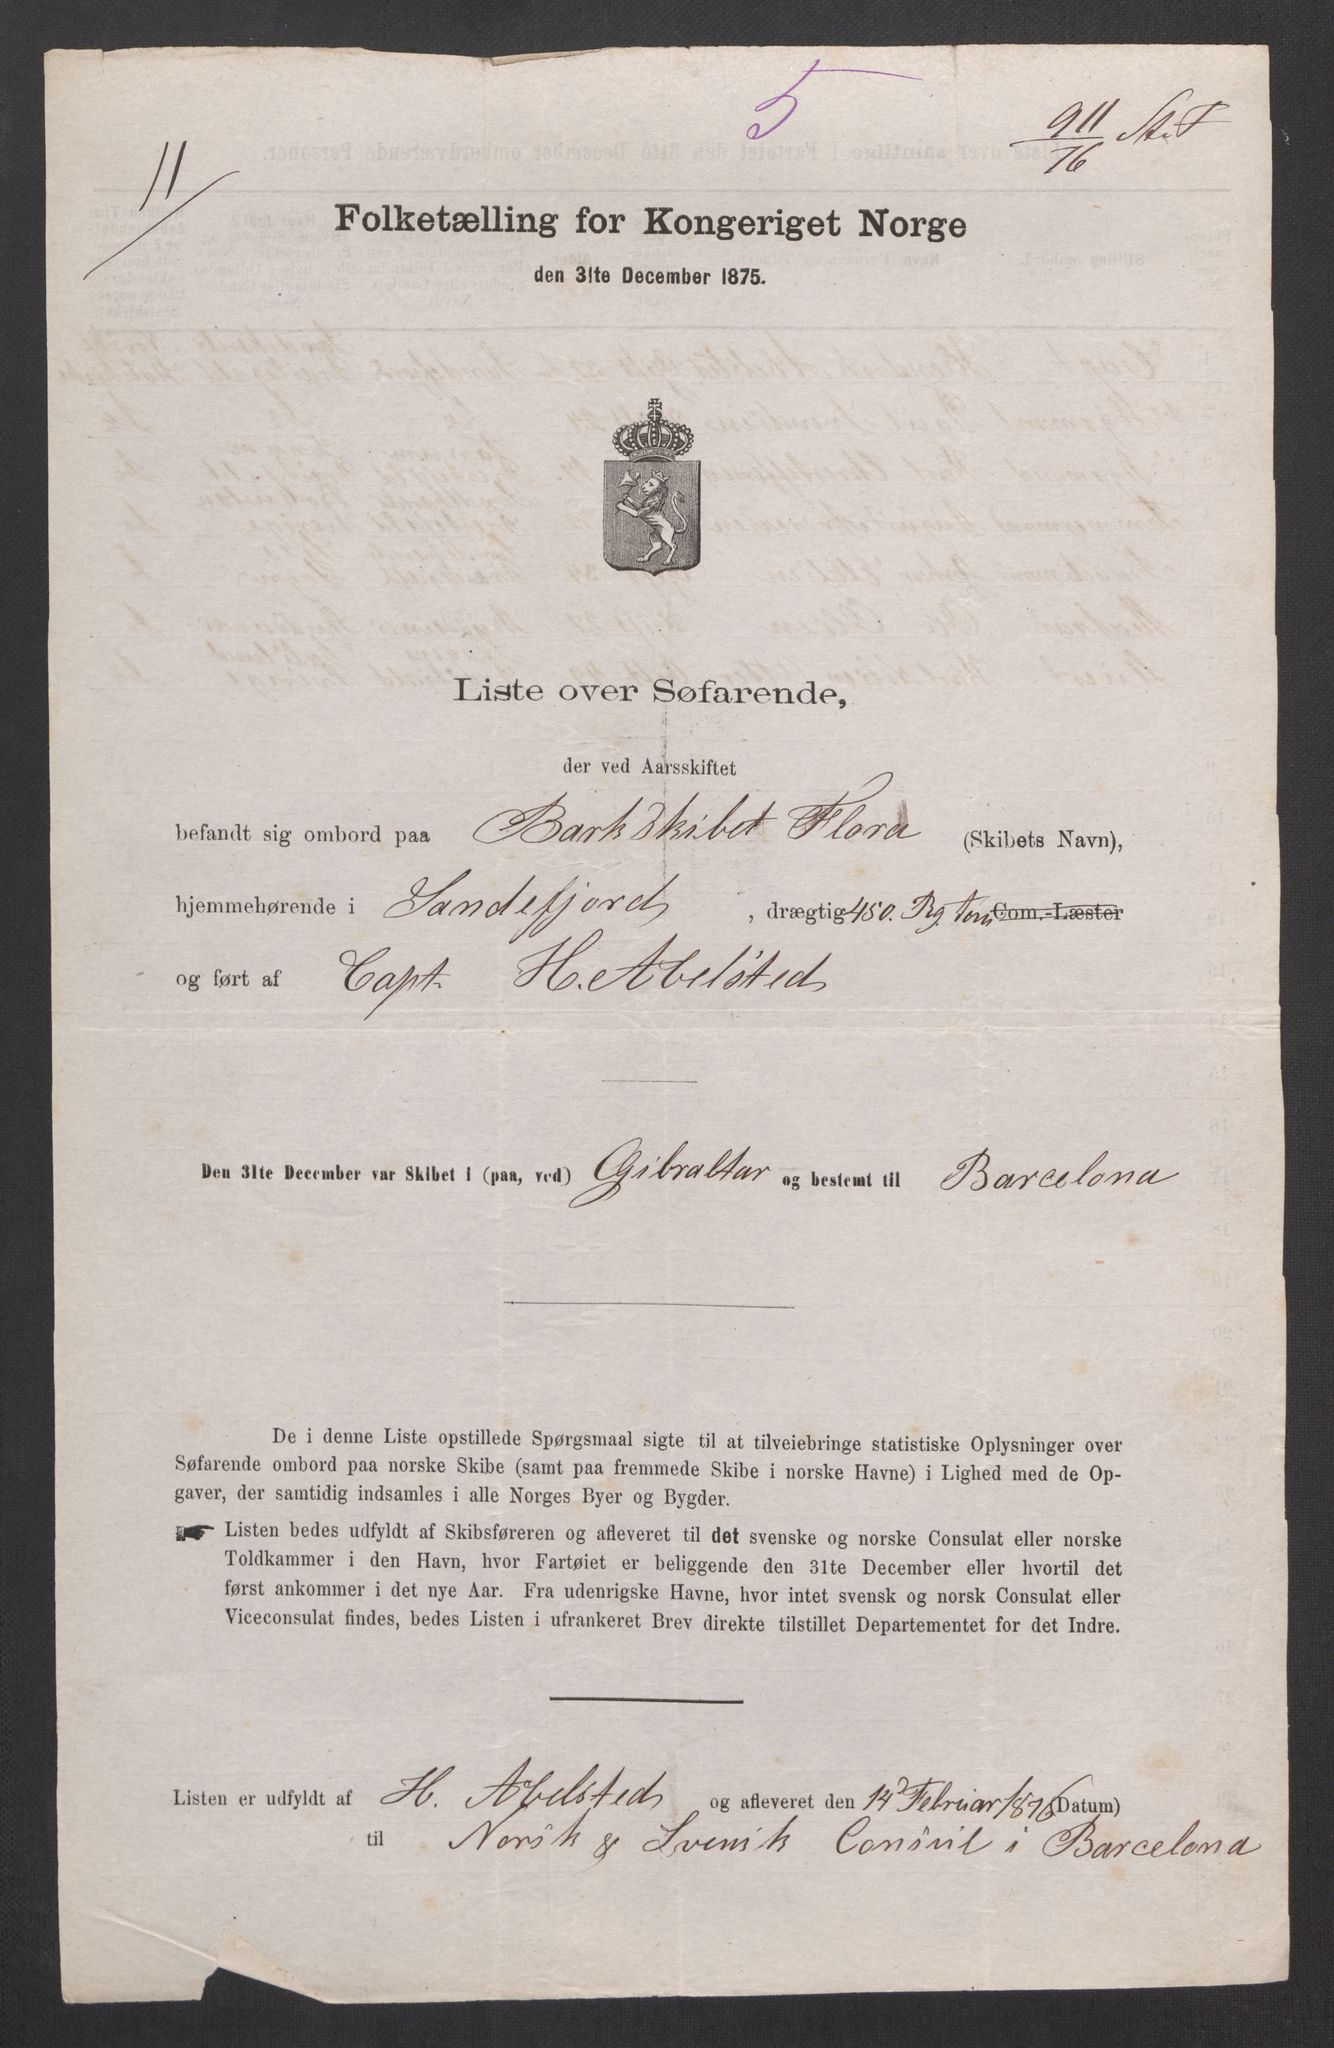 5
911/76 St. T
11
Folketælling for Kongeriget Norge
den 31te December 1875.
Liste over Søfarende,
der ved Aarsskiftet
befandt sig ombord paa Bark Skibet Flora (Skibets Navn),
hjemmehørende i Sandefjord, drægtig 450. Rg. Tons Com.-Læster
og ført af Capt. H. Abelsted
Den 31te December var Skibet i (paa, ved) Gibraltar og bestemt til Barcelona
De i denne Liste opstillede Spørgsmaal sigte til at tilveiebringe statistiske Oplysninger over
Søfarende ombord paa norske Skibe (samt paa fremmede Skibe i norske Havne) i Lighed med de Op-
gaver, der samtidig indsamles i alle Norges Byer og Bygder.
☛ Listen bedes udfyldt af Skibsføreren og afleveret til det svenske og norske Consulat eller norske
Toldkammer i den Havn, hvor Fartøiet er beliggende den 31te December eller hvortil det
først ankommer i det nye Aar. Fra udenrigske Havne, hvor intet svensk og norsk Consulat eller
Viceconsulat findes, bedes Listen i ufrankeret Brev direkte tilstillet Departementet for det Indre.
Listen er udfyldt af H. Abelsted og afleveret den 14d Februar 1876 (Datum)
til Norsk & Svensk Consul i Barcelona